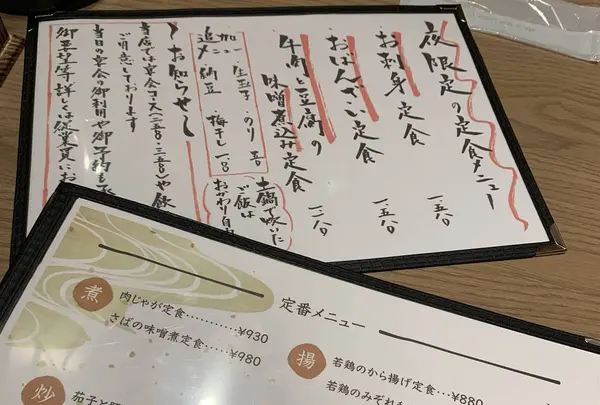 夜限定の定食メニュー
お刺身定食 一、五八〇
おばんざい定食 一、五八〇
牛肉と豆腐の
味噌煮込み定食 一、二八〇
土鍋で炊いた
ご飯は
おかわり自
追加メニュー
・生玉子・のり 五〇
・納豆・梅干し 一〇〇
～お知らせ～
当店では宴会コース(二五〇〇・三五〇〇)や飲
ご用意しております
当日の宴会の御利用や御予
御要望等詳しくは従業員にお
定番メニュー
煮
肉じゃが定食…………¥930
さばの味噌煮定食………¥980
揚
若鶏のから揚げ定食…¥880
若鶏のみぞれ
炒
茄子と